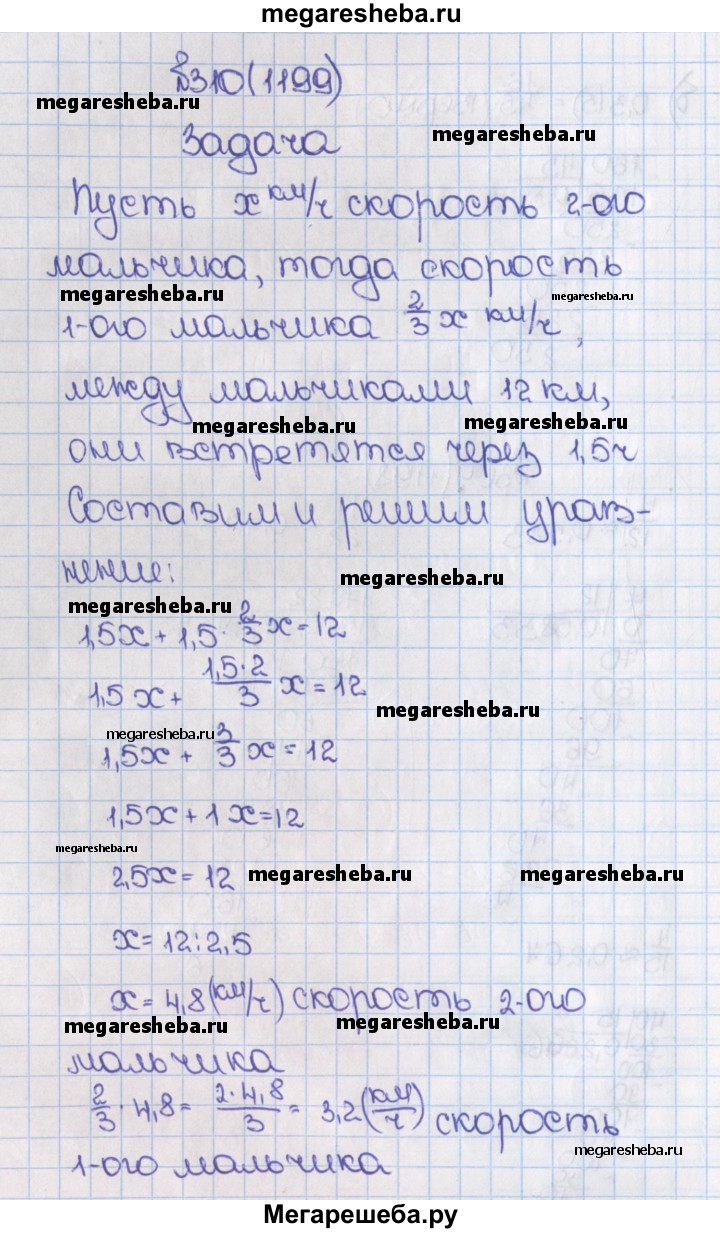 megaresheba.ru
№310(1199)
megaresheba.ru
megaresheba.ru
Задача
Пусть x км/ч скорость 2-ого
мальчика, тогда скорость
megaresheba.ru
megaresheba.ru
1-ого мальчика 2/3 x км/ч,
между мальчиками 12 км,
megaresheba.ru
megaresheba.ru
они встретятся через 1,5ч
Составим и решим урав-
нение:
megaresheba.ru
megaresheba.ru
1,5x + 1,5 · 2/3 x = 12
1,5 x + 1,5·2/3 x = 12
megaresheba.ru
megaresheba.ru
1,5x + 3/3 x = 12
1,5x + 1x = 12
megaresheba.ru
2,5x = 12
megaresheba.ru
megaresheba.ru
x = 12:2,5
x = 4,8 (км/ч) скорость 2-ого
megaresheba.ru
megaresheba.ru
мальчика
2/3 · 4,8 = 2·4,8/3 = 3,2 (км/ч) скорость
megaresheba.ru
1-ого мальчика
Мегарешеба.ру